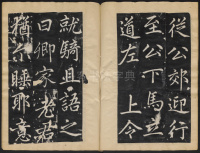 從公郊迎行
至公下馬立
道左 上令
就騎且語之
曰卿家老君
猶尔睡耶意